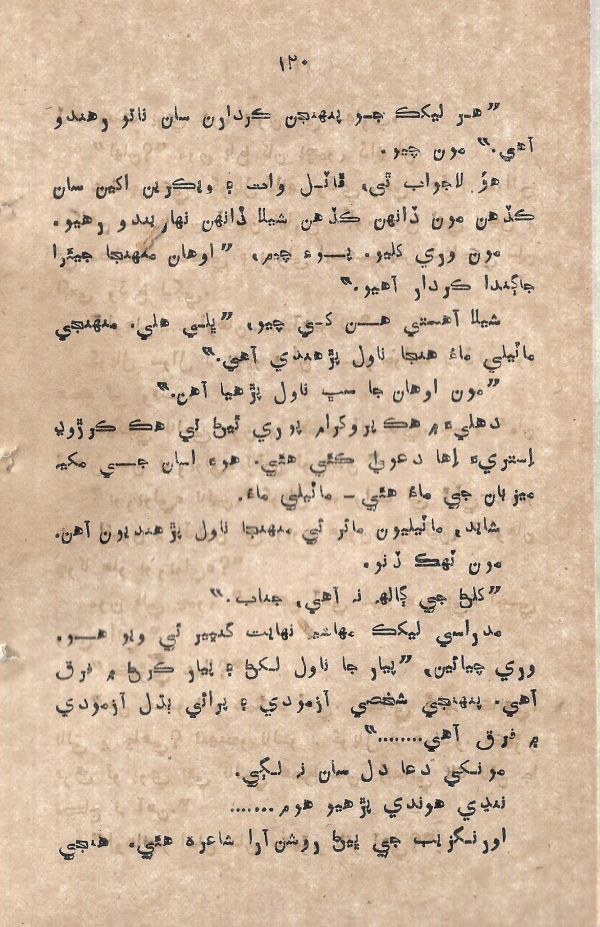 ١٢٠
”هر ليکڪ جو پنهنجن ڪردارن سان ناتو رهندو
آهي.“ مون چيو.
هوُ لاجواب ٿي، ڦاٽل وات ۽ ويڪرين اکين سان
ڪڏهن مون ڏانهن ڪڏهن شيلا ڏانهن نهاريندو رهيو.
مون وري کليو. پوءِ چيم، ”اوهان منهنجا جيئرا
جاڳندا ڪردار آهيو.“
شيلا آهستي هن کي چيو، ”ڀلي هلي. منهنجي
ماٽيلي ماءُ هنجا ناول پڙهندي آهي.“
”مون اوهان جا سڀ ناول پڙهيا آهن.“
دهليءَ ۾ هڪ پروگرام پوري ٿيڻ تي هڪ ڪرڙوڍ
إستريءَ إها دعوا ڪئي هئي. هوءَ اسان جي مکيه
ميزبان جي ماءُ هئي – ماٽيلي ماءُ.
شايد، ماٽيليون مائر ئي منهنجا ناول پڙهنديون آهن.
مون ٽهڪ ڏنو.
”کلڻ جي ڳالهه نه آهي، جناب.“
مدراسي ليکڪ مهاشيه نهايت گنڀير ٿي ويو هو.
وري چيائين، ”پيار جا ناول لکڻ ۽ پيار ڪرڻ ۾ فرق
آهي. پنهنجي شخصي آزمودي ۽ پرائي ٻڌل آزمودي
۾ فرق آهي........“
مونکي دعا دل سان نه لڳي.
ننڍي هوندي پڙهيو هوم.......
اورنگزيب جي ڀيڻ روشن‌آرا شاعره هئي. هنجي